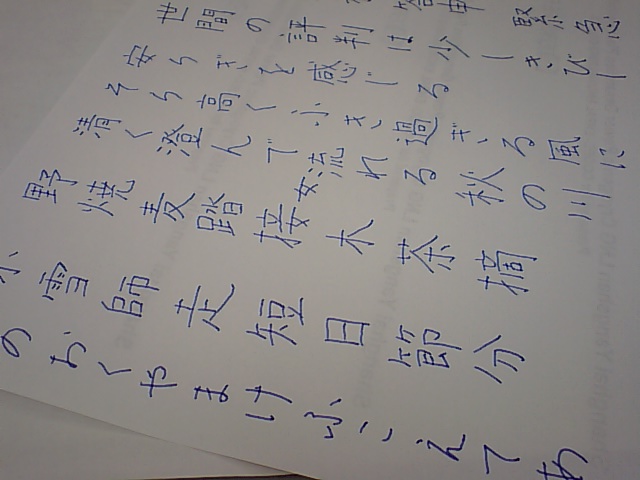 世間の評判は少しきびし
安らぎを感じる
そら高くふき過ぎる風に
清く澄んで流れる秋の川
野焼麦踏接木茶摘
小雪師走短日節分
のおくやまけふこえてあ